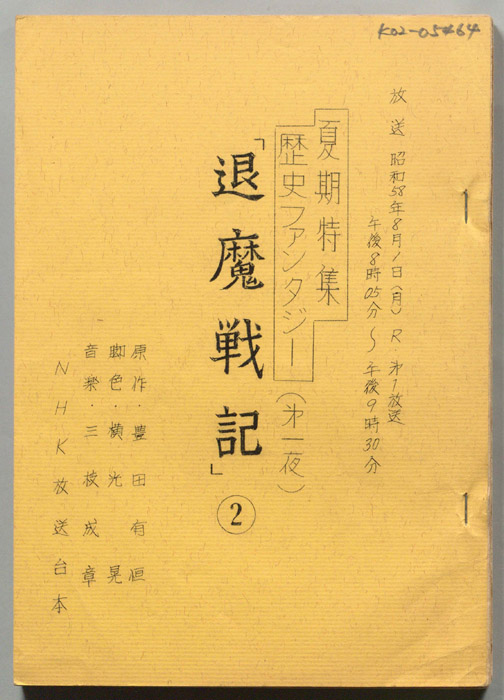 K02-05464
放送 昭和58年8月1日(月) R 第1放送
午後8時05分〜午後9時30分
夏期特集
歴史ファンタジー(第一夜)
「退魔戦記」②
原作 豊田有恒
脚色・横光 晃
音楽・三枝成章
NHK放送台本